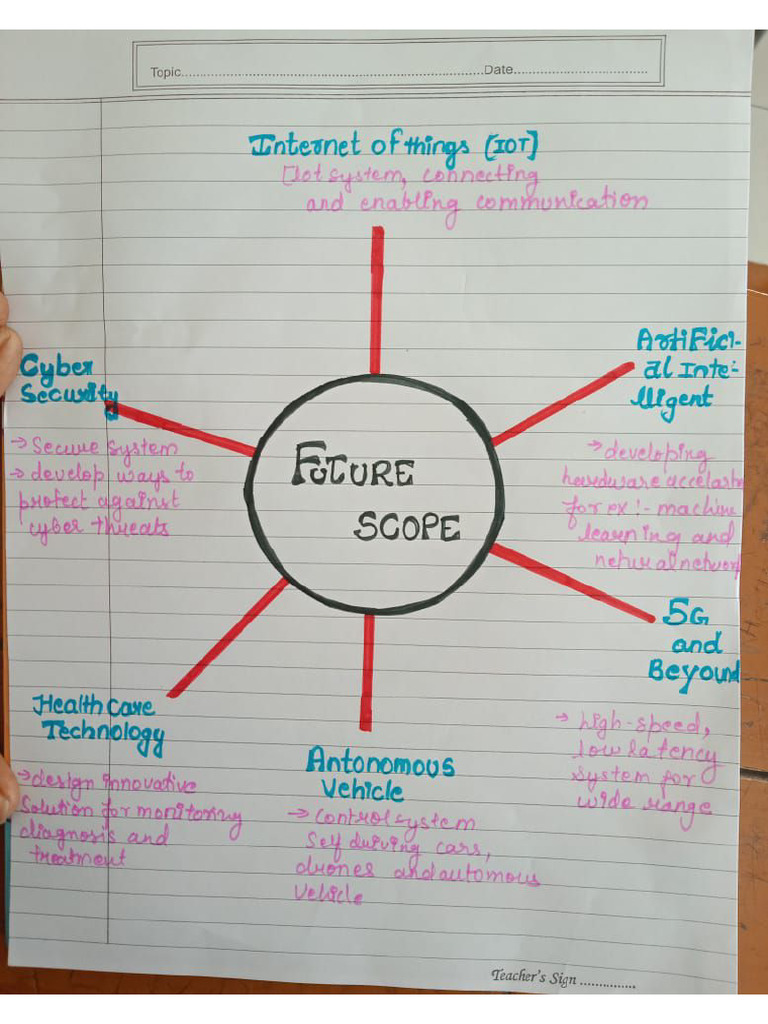 Topic........................Date........................
Internet of things [IOT]
[Iot system, connecting
and enabling communication
Artifici-
al Inte-
lligent
→ developing
hardware accelarto
for ex :- machine
learning and
netural network
5G
and
Beyound
→ high-speed,
low latency
system for
wide range
Antonomous
Vehicle
→ control system
self driving cars,
drones and automous
vehicle
Health Care
Technology
→ design innovative
solution for monitoring
diagnosis and
treatment
Cyber
Security
→ Secure system
→ develop ways to
protect against
cyber threats
FUTURE
SCOPE
Teacher's Sign ...............